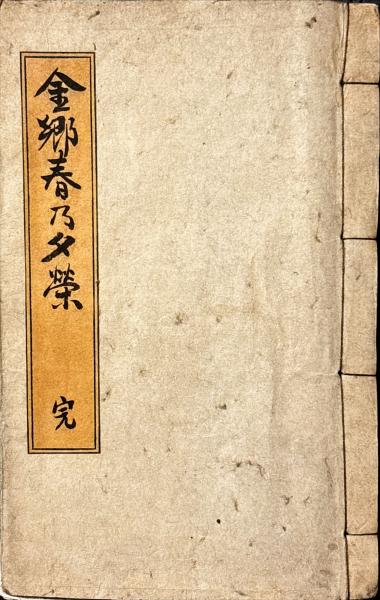 金郷春乃夕榮
完